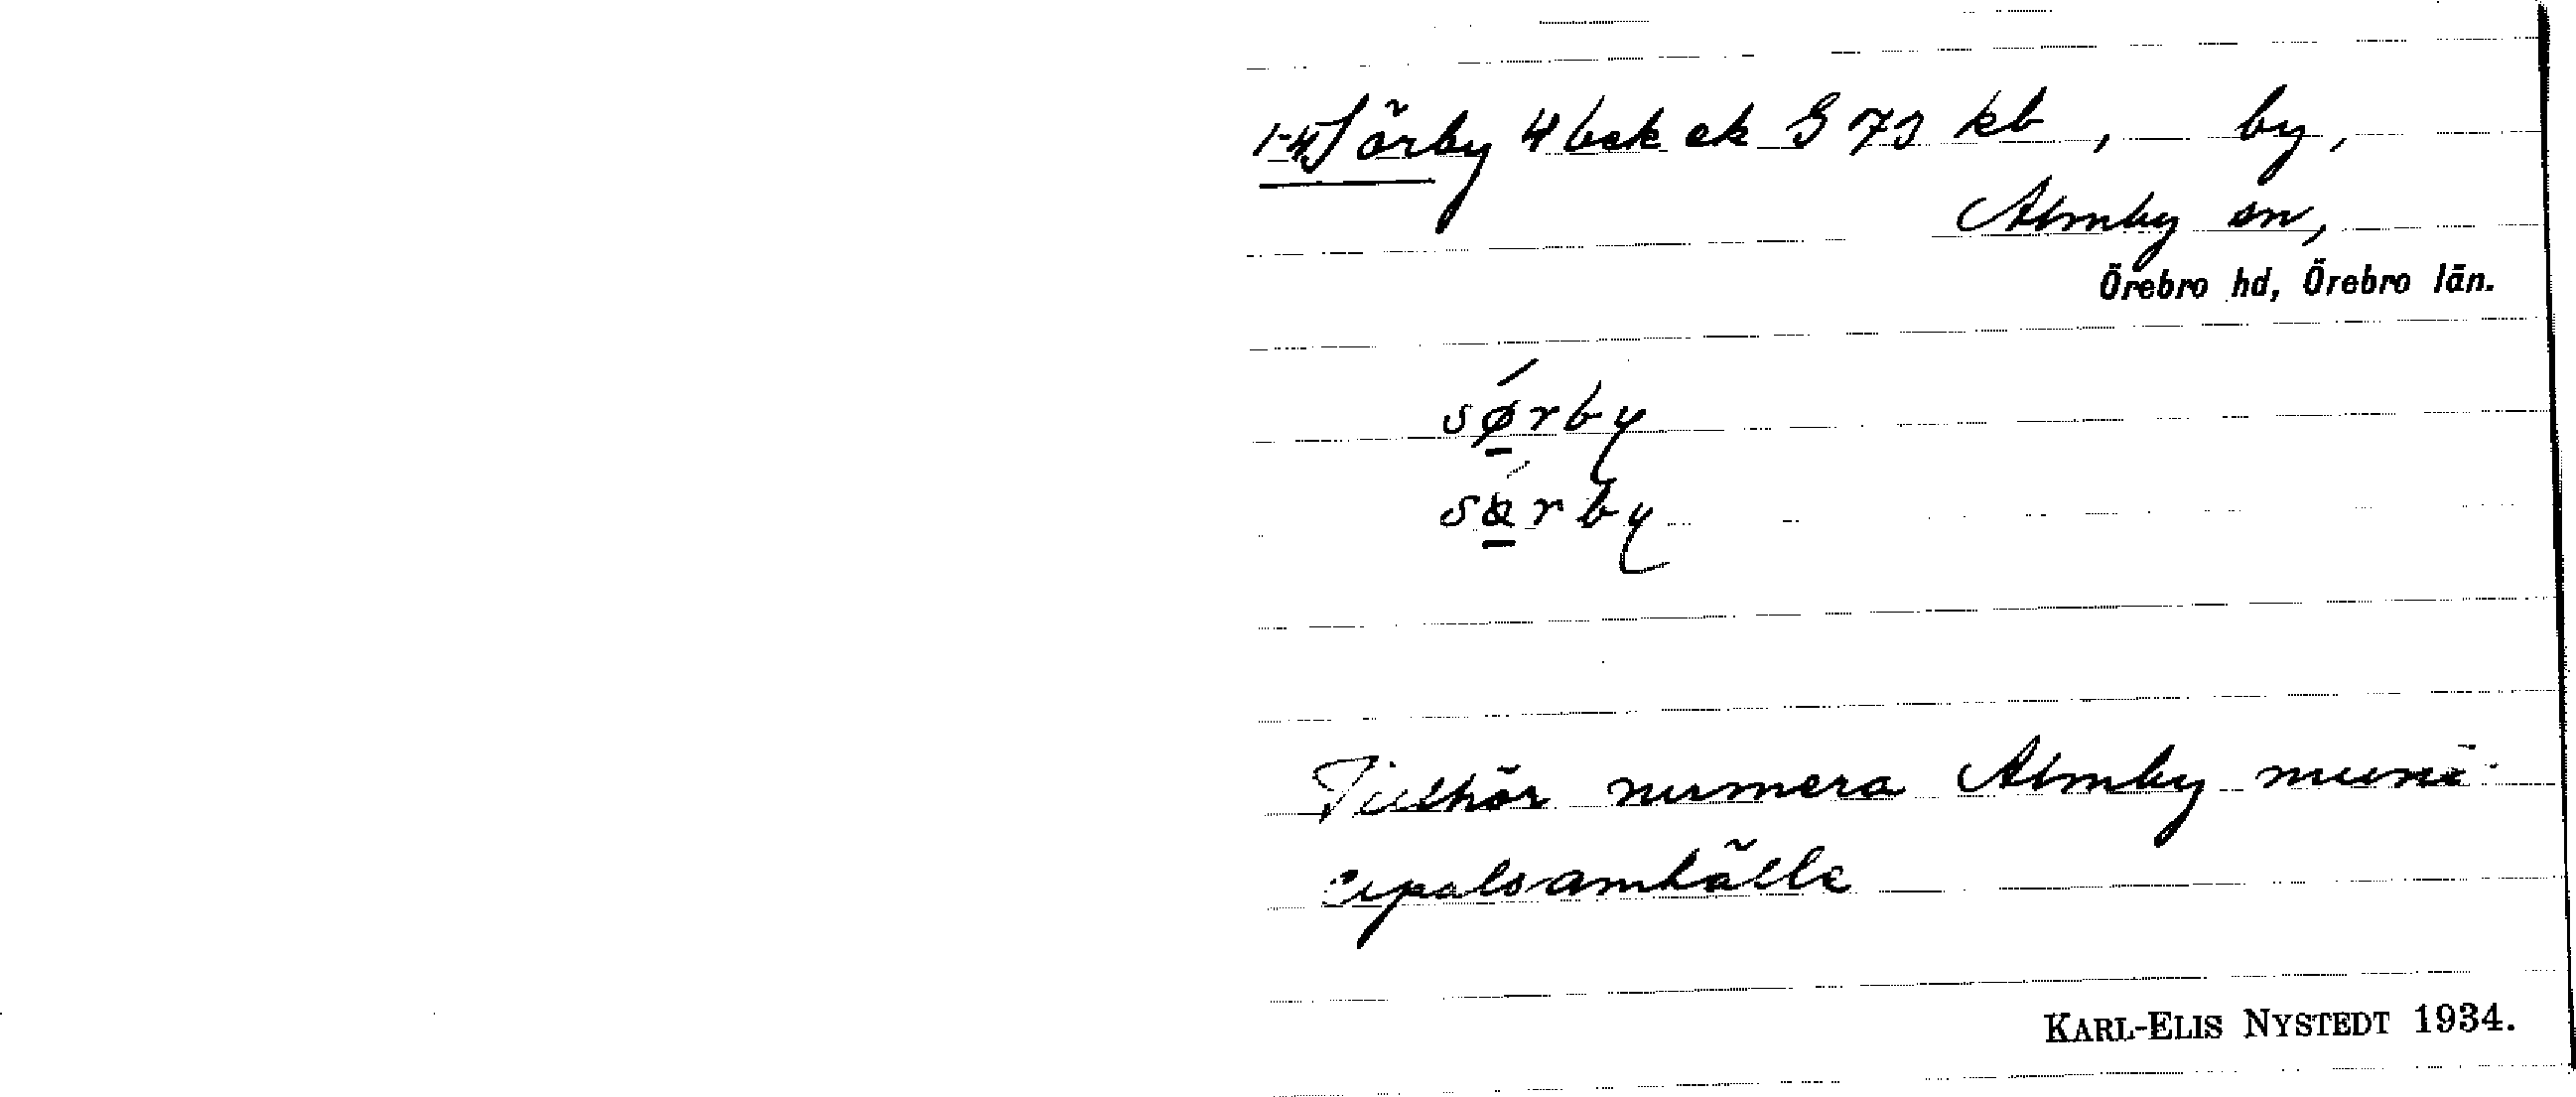 1-4 Sörby 4 bek ek G 73 kb, by,
Almby sn,
Örebro hd, Örebro län.
sǿ̲rby
sby
Tillhör numera Almby muni-
cipalsamhälle
KARL-ELIS NYSTEDT 1934.